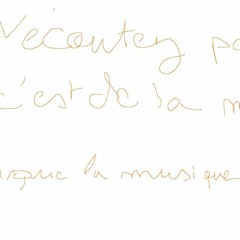 N'écoutez pa
c'est de la m
usique la musique